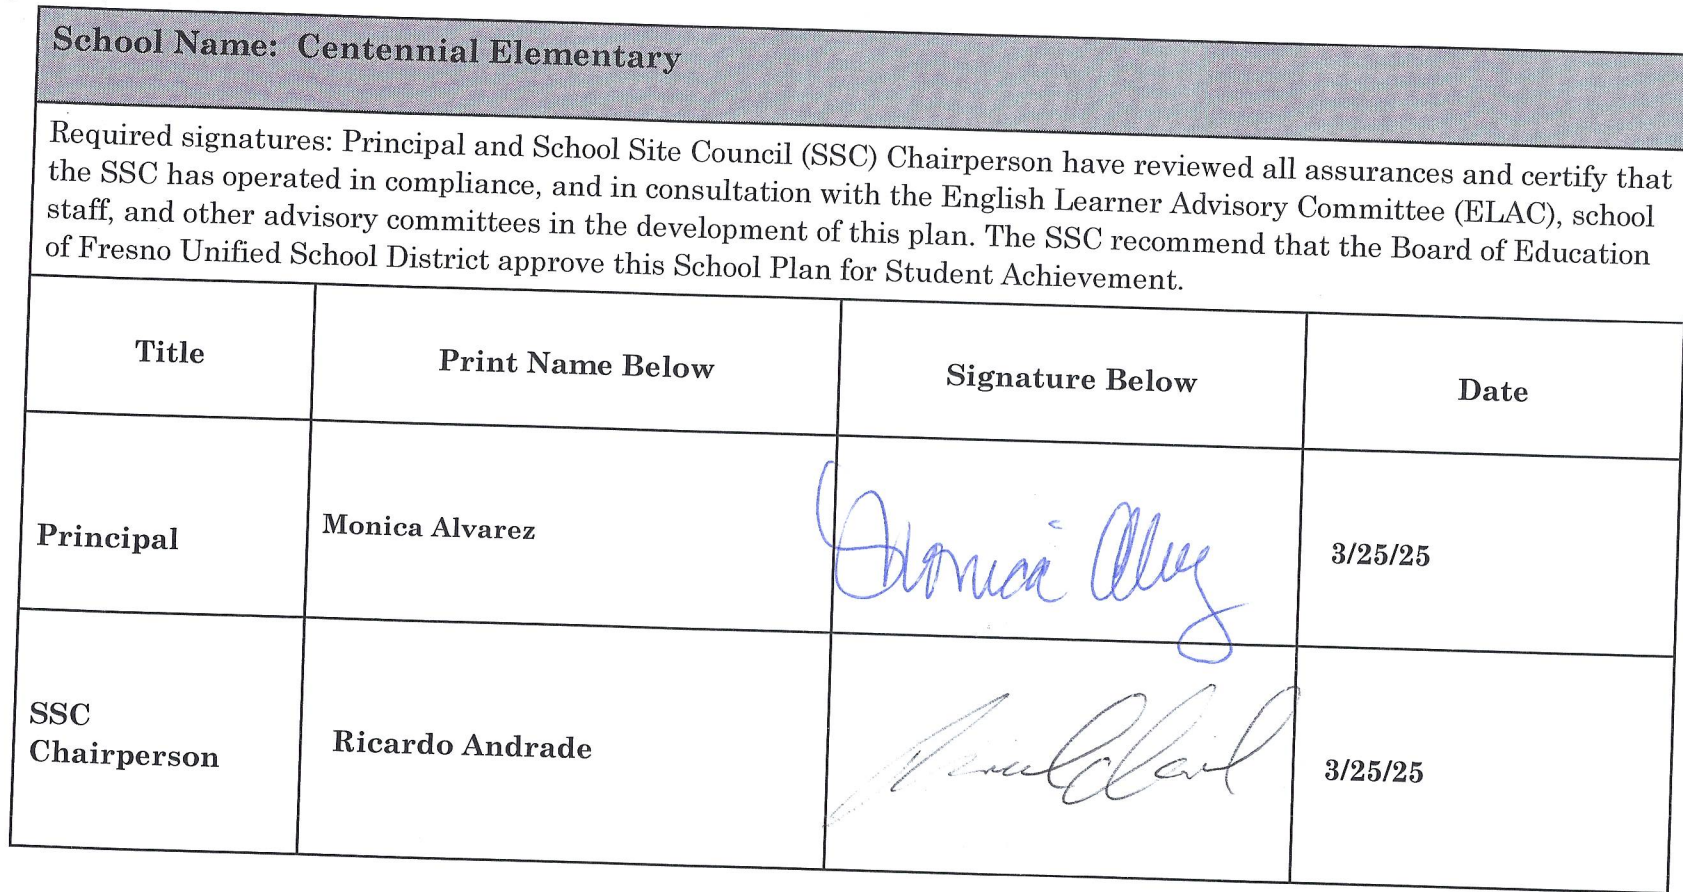 School Name: Centennial Elementary
Required signatures: Principal and School Site Council (SSC) Chairperson have reviewed all assurances and certify that
the SSC has operated in compliance, and in consultation with the English Learner Advisory Committee (ELAC), school
staff, and other advisory committees in the development of this plan. The SSC recommend that the Board of Education
of Fresno Unified School District approve this School Plan for Student Achievement.
Title Print Name Below Signature Below Date
Principal Monica Alvarez Monica 3/25/25
SSC
Chairperson Ricardo Andrade 3/25/25